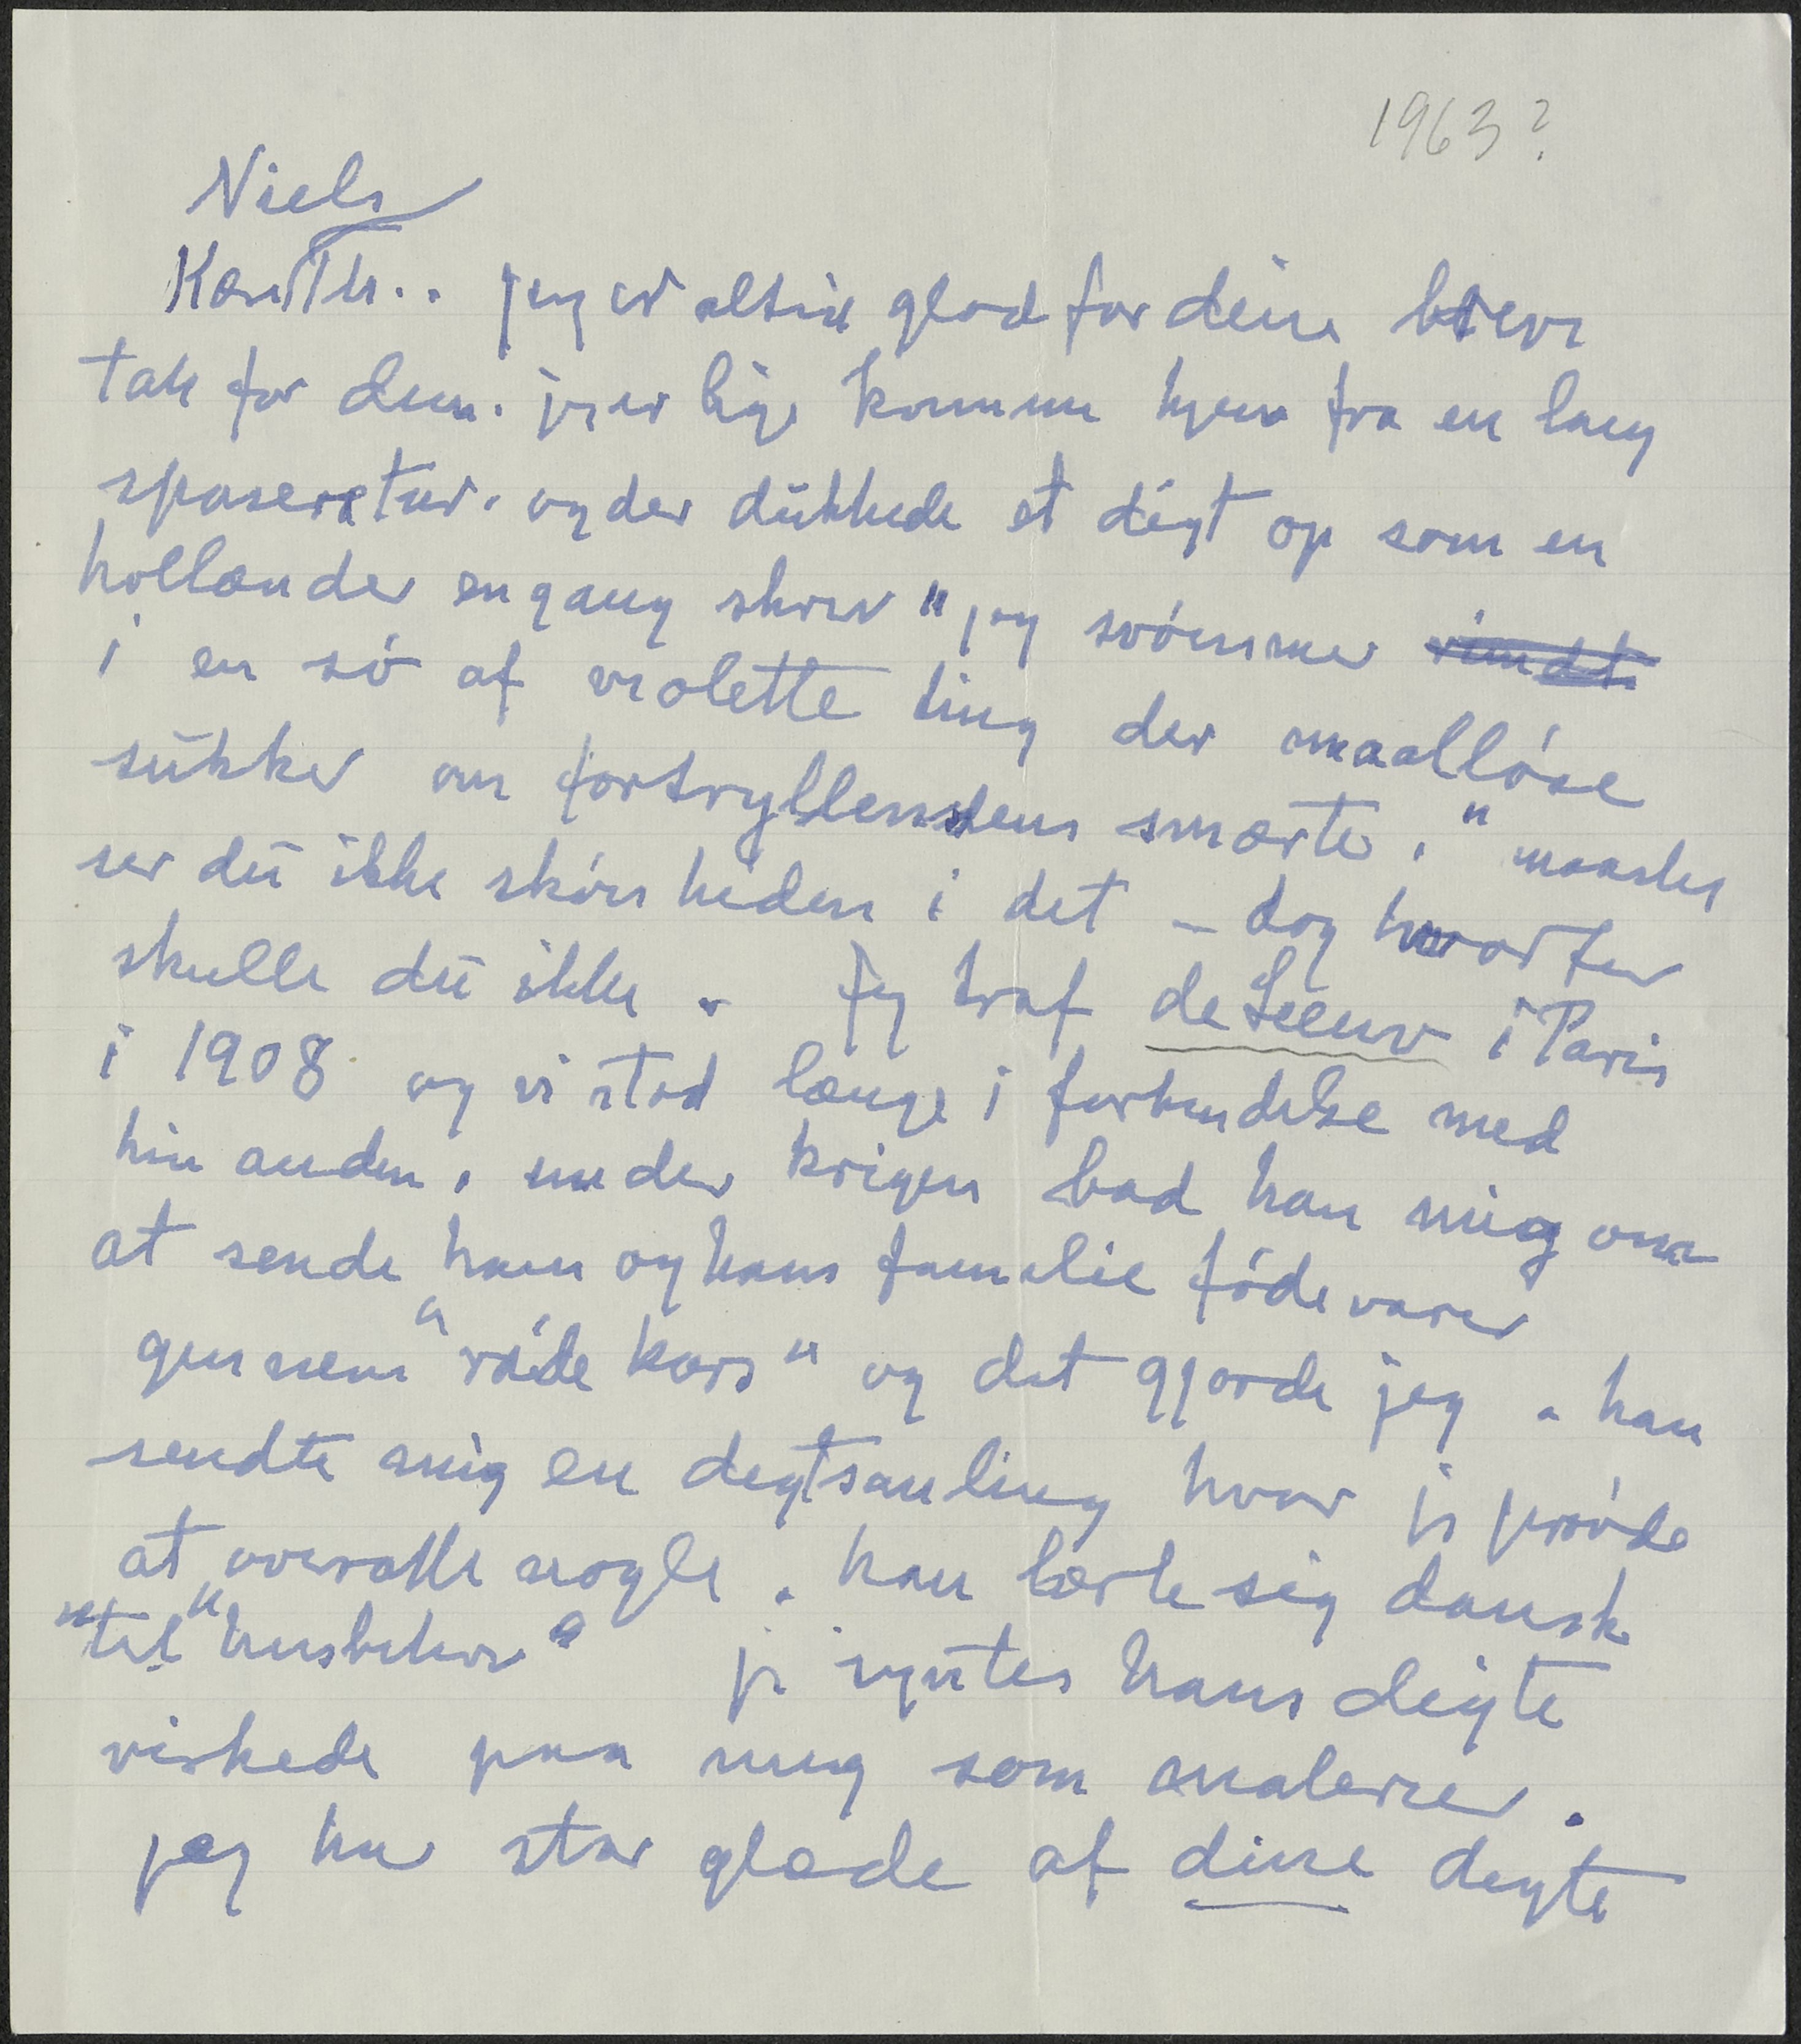 1963?
Niels
Kære Th.. jeg er altid glad for dine breve
tak for dem. jeg er lige kommen hjem fra en lang
spaseretur. og der dukkede et digt op som en
hollænder engang skrev "jeg svømmer
i en sø af violette ting der maalløse
sukker om fortryllendens smerte." maaske
ser du ikke skønheden i det – dog hvorfor
skulle du ikke. Jeg traf de Leeuw i Paris
i 1908 og vi stod længe i forbindelse med
hinanden. under krigen bad han mig om
at sende ham og hans familie fødevarer
gennem "røde kors" og det gjorde jeg. han
sendte mig en digtsamling hvor jeg prøvde
at oversætte nogle. han lærte sig dansk
"til "husbehov" jeg syntes hans digte
virkede paa mig som malerier.
jeg har stor glæde af dine digte